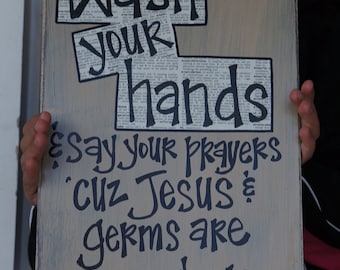 wash
your
hands
& say your prayers
'cuz Jesus &
germs are